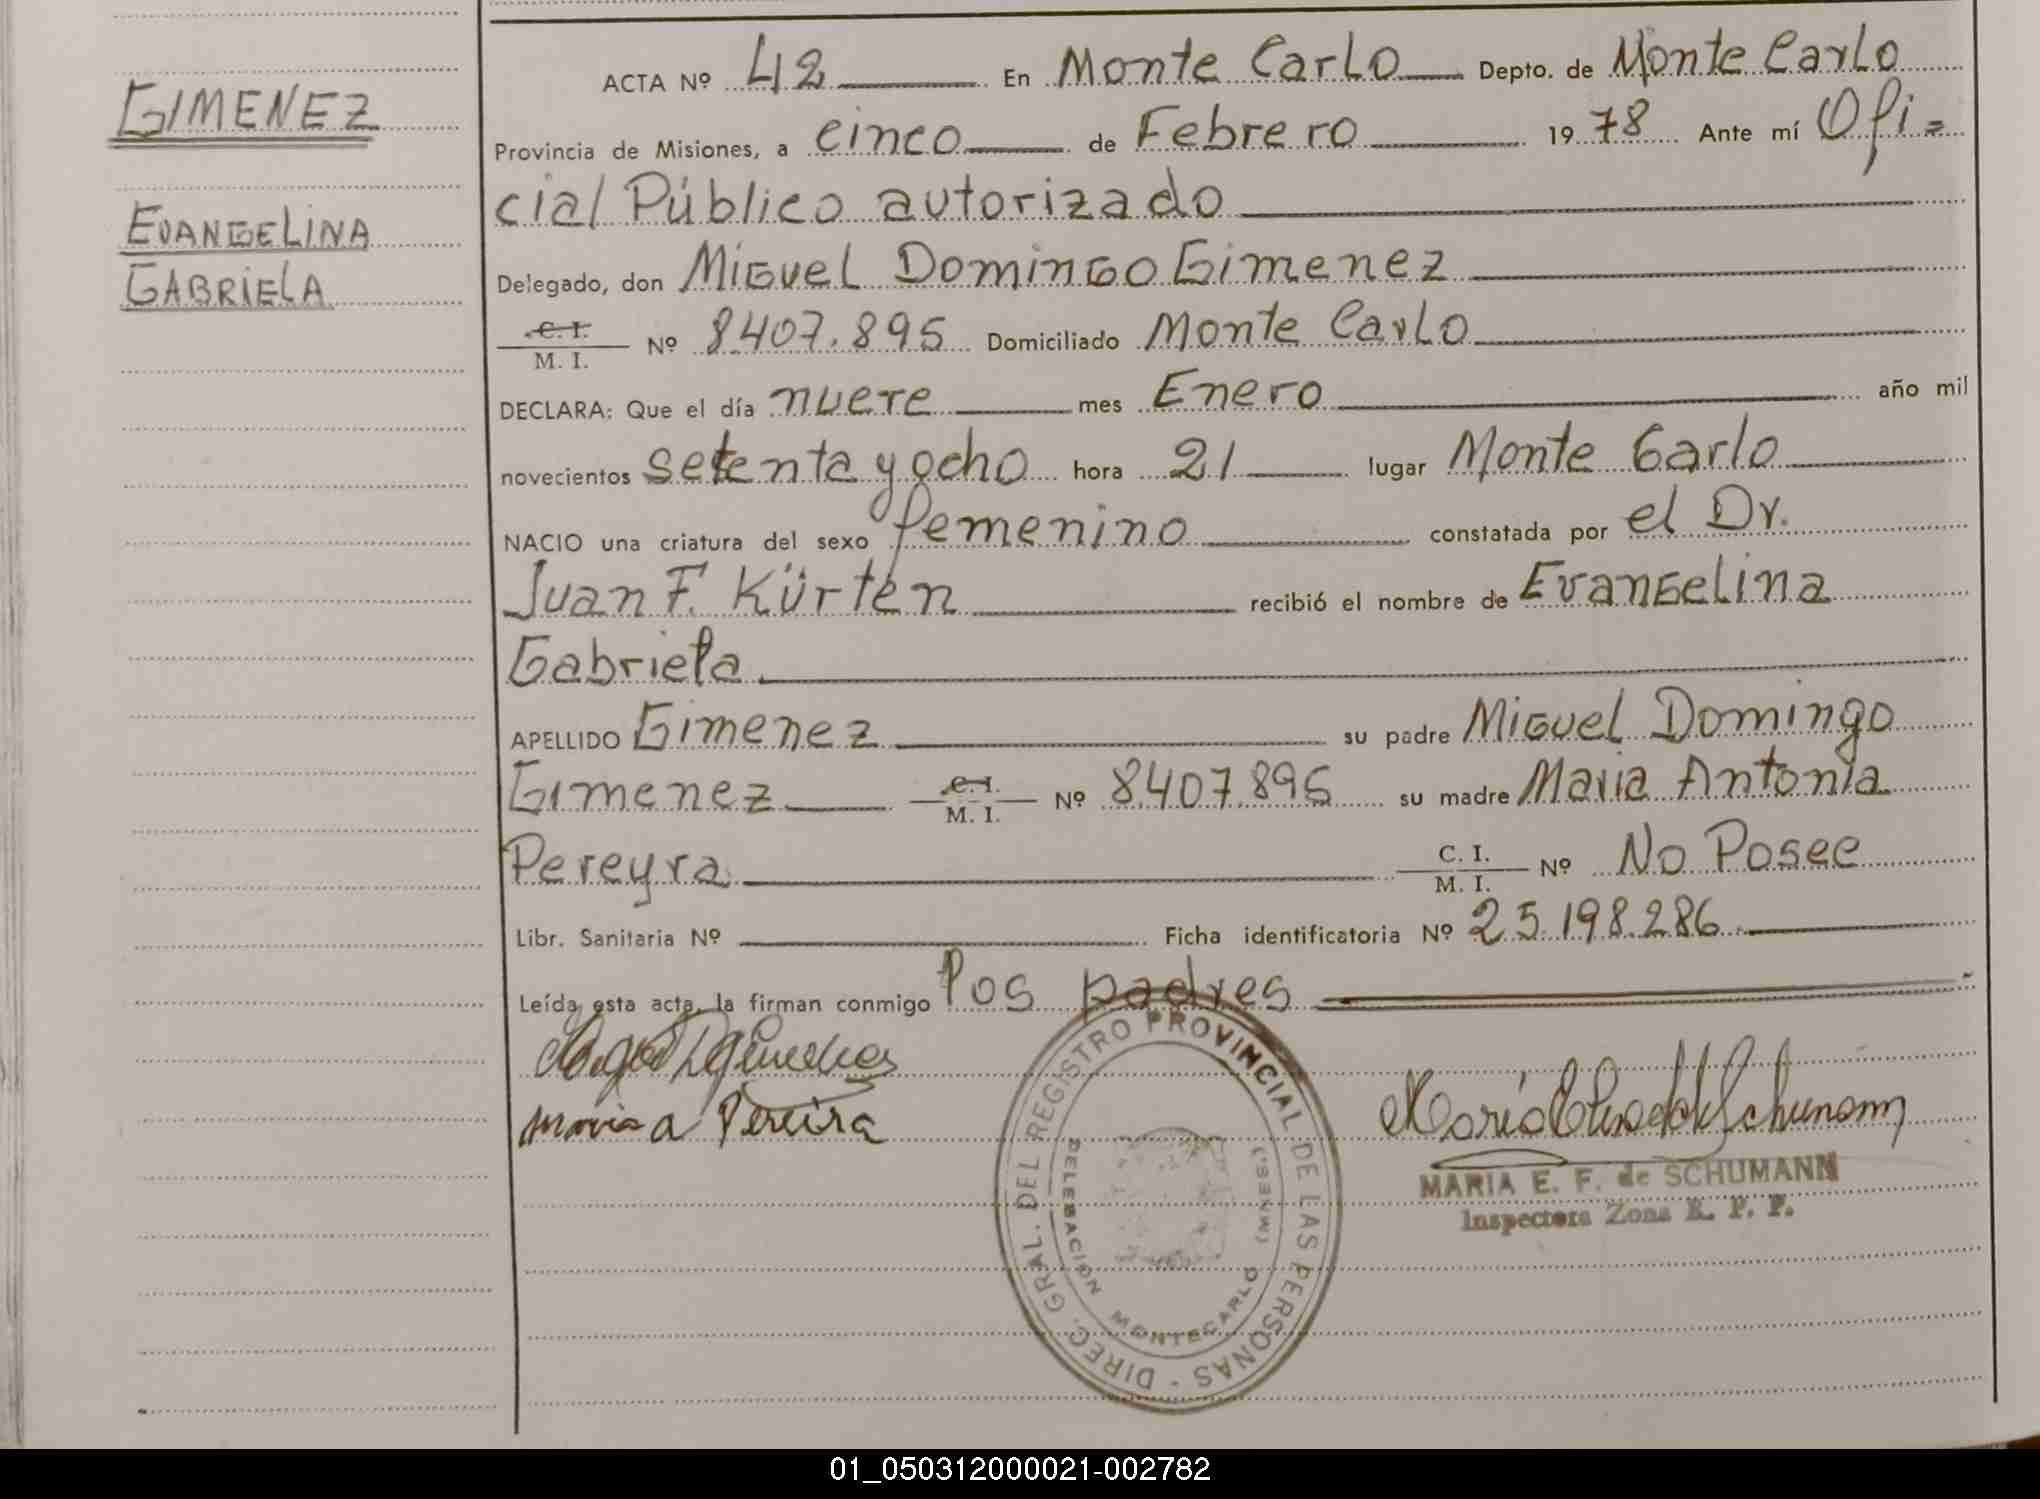 GIMENEZ
EVANGELINA
GABRIELA
ACTA Nº 42 En Monte Carlo Depto. de Monte Carlo
Provincia de Misiones, a cinco de Febrero 1978 Ante mí Ofi=
cial Público autorizado
Delegado, don Miguel Domingo Gimenez
C. I.
M. I. Nº 8407.895 Domiciliado Monte Carlo
DECLARA: Que el día nueve mes Enero año mil
novecientos setenta y ocho hora 21 lugar Monte Carlo
NACIO una criatura del sexo femenino constatada por el Dr.
Juan F. Kürten recibió el nombre de Evangelina
Gabriela
APELLIDO Gimenez su padre Miguel Domingo
Gimenez C. I. M. I. Nº 8407.895 su madre Maria Antonia
Pereyra C. I. M. I. Nº No Posee
Libr. Sanitaria Nº Ficha identificatoria Nº 25.198.286
Leída esta acta, la firman conmigo los padres
Maria a Pereira
DIREC. GRAL. DEL REGISTRO PROVINCIAL DE LAS PERSONAS -
DELEGACION MONTECARLO (MNES.)
MARIA E. F. de SCHUMANN
Inspectora Zona R. P. P.
01_050312000021-002782